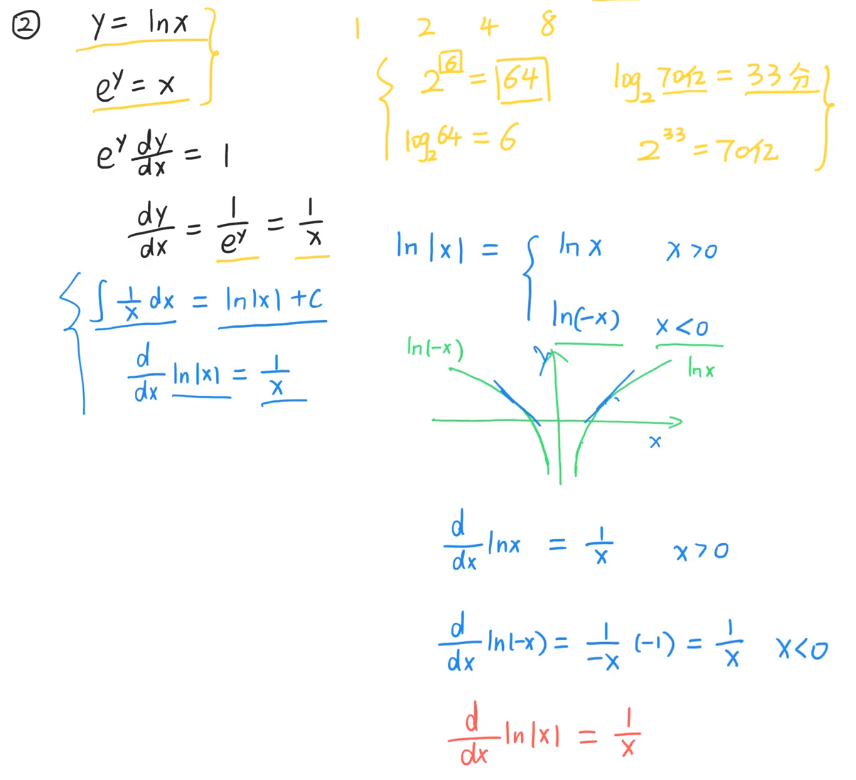 ② y = ln x
e^y = x
e^y dy/dx = 1
dy/dx = 1/e^y = 1/x
∫ 1/x dx = ln|x| + C
d/dx ln|x| = 1/x
1 2 4 8
2^6 = 64
log₂64 = 6
log₂ 70亿 = 33分
2^33 = 70亿
ln|x| = { ln x x>0
ln(-x) x<0
ln(-x)
y
ln x
x
d/dx ln x = 1/x x>0
d/dx ln(-x) = 1/-x (-1) = 1/x x<0
d/dx ln|x| = 1/x